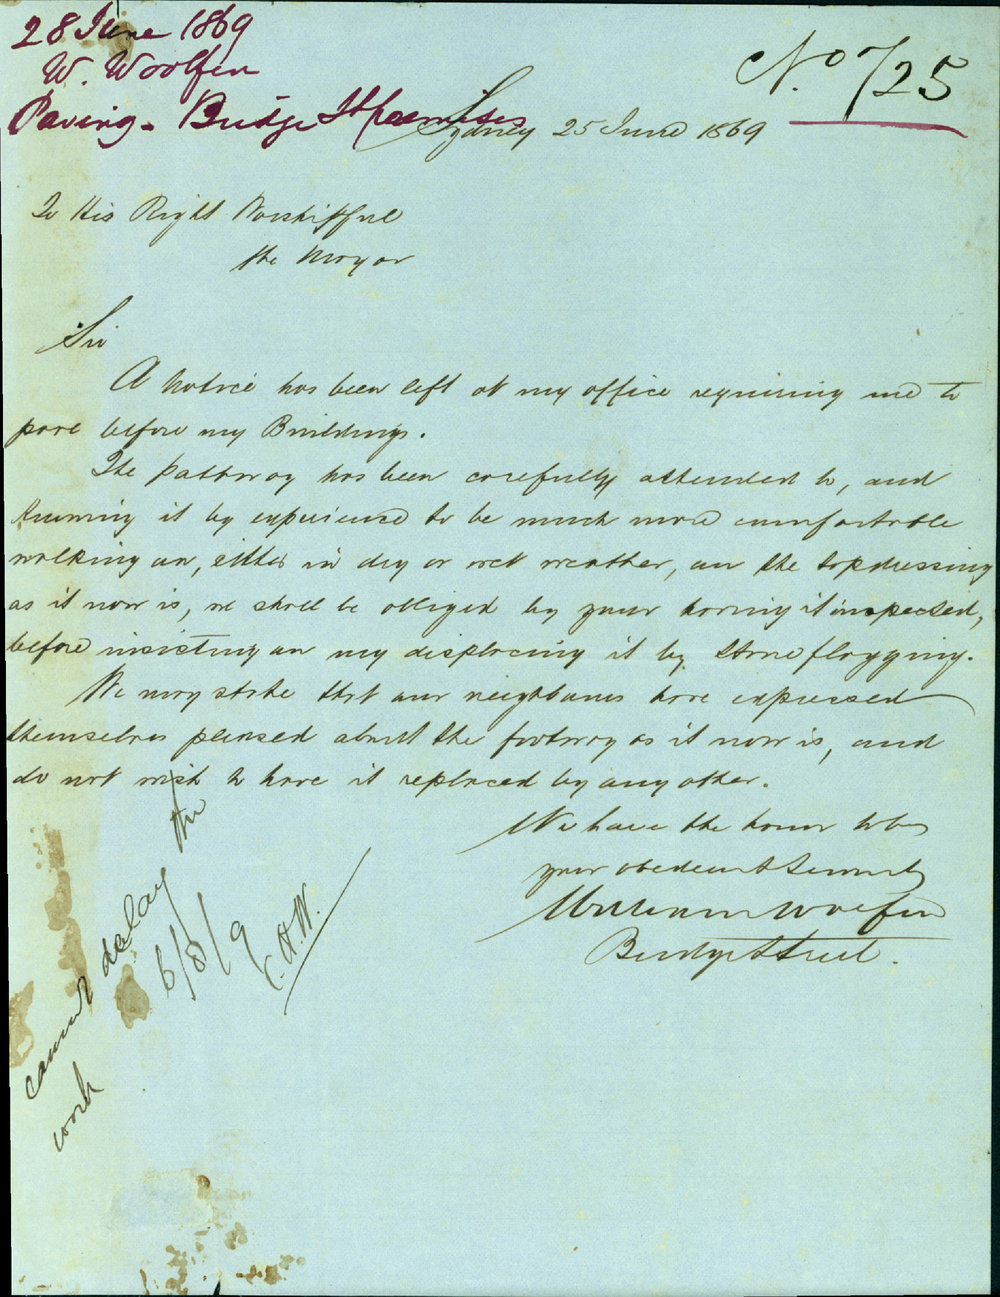 28 June 1869
W. Woolfen
Paving - Bridge St premises
No 725
Sydney 25 June 1869
To His Right Worshipful
the Mayor
Sir
A Notice has been left at my office requiring me to
pave before my Buildings.
The pathway has been carefully attended to, and
knowing it by experience to be much more comfortable
walking on, either in dry or wet weather, on the topdressing
as it now is, we shall be obliged by your having it inspected,
before insisting on my displacing it by stone flagging.
We may state that our neighbours have expressed
themselves pleased about the footway as it now is, and
do not wish to have it replaced by any other.
We have the honor to be
your obedient Servants
William Woolfen
Bridge Street.
cannot delay the
work
6/8/9